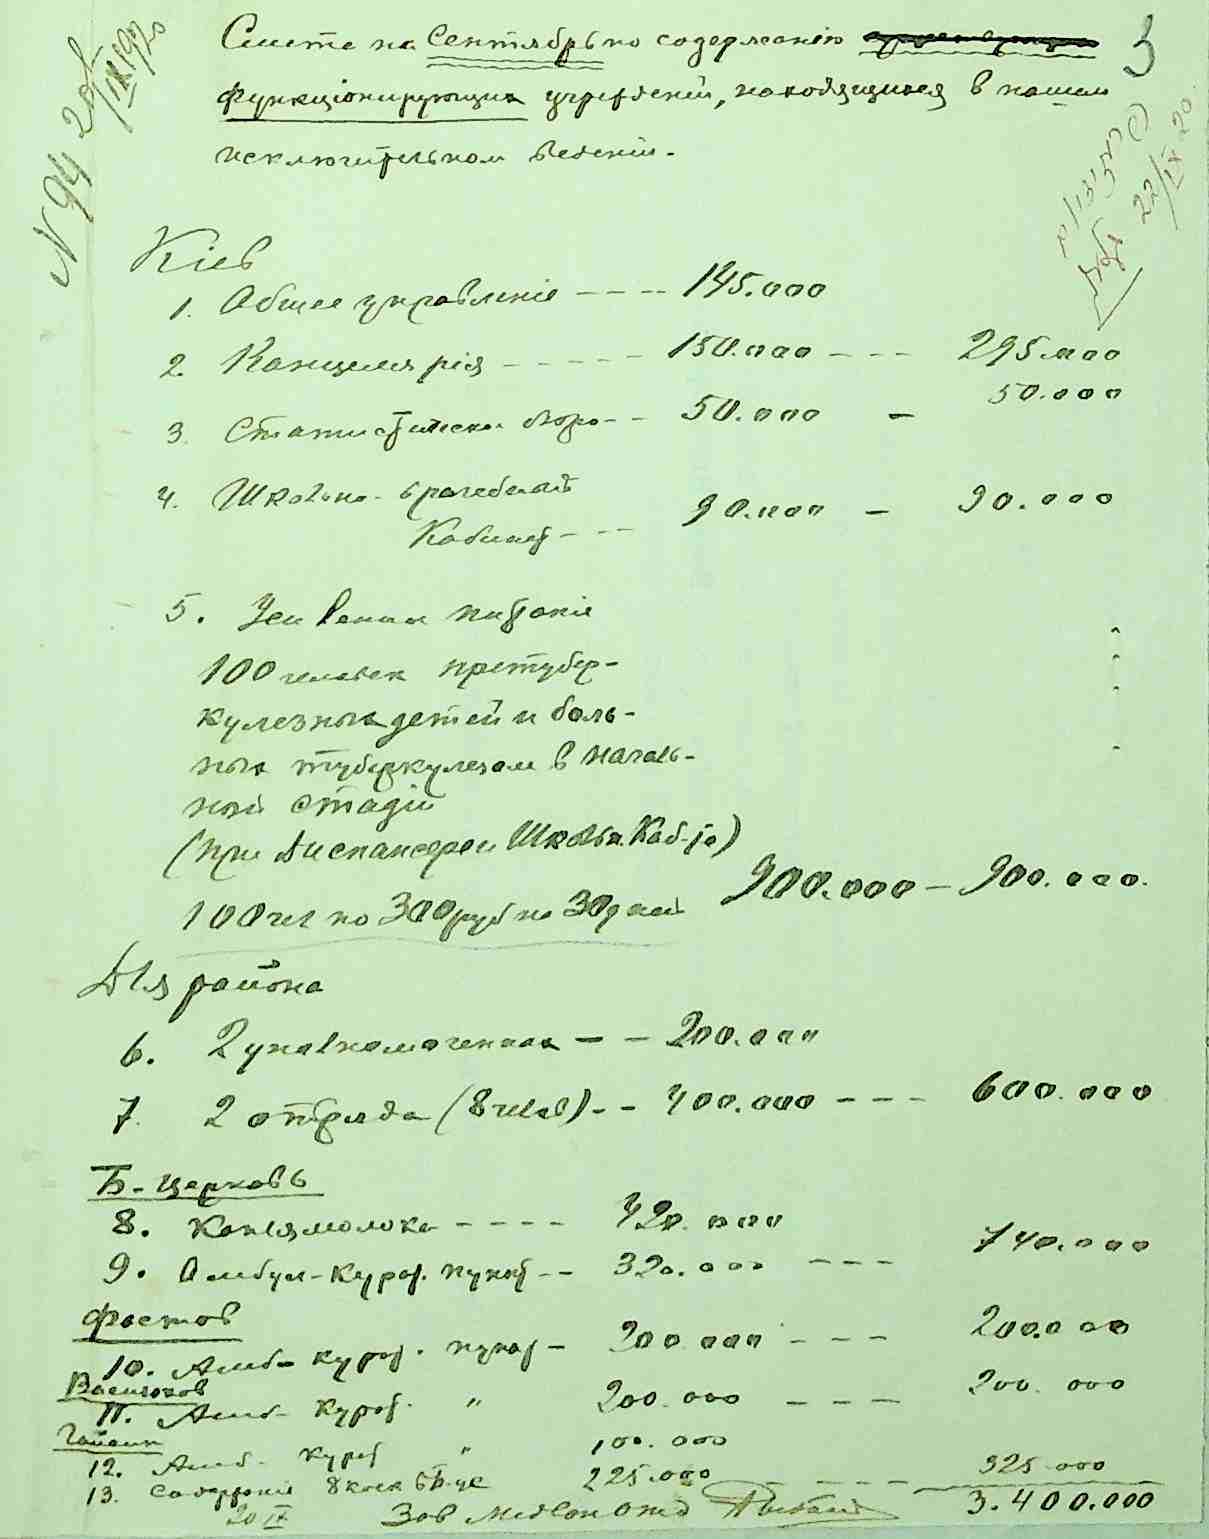 Смета на Сентябрь по содержанію
функціонирующих учреждений, находящихся в нашем
исключительном ведении.
3
N 94 20/IX 1920
22/IX 20.
Кіев
1. Общее управленіе - - - - 145.000
2. Канцелярія - - - - - 150.000 - - - 295.000
3. Статистическ бюро - - 50.000 - 50.000
4. Школьно-врачебный
Кабинет - - - 90.000 - 90.000
5. Усиленное питаніе
100 человек претубер-
кулезных детей и боль-
ных туберкулезом в началь-
ной стадіи
(при Диспансере и Школьн. Каб-те)
100 чел по 300 руб на 30 дней 900.000 - 900.000.
Для района
6. 2 уполномоченных - - 200.000
7. 2 отряда (8 чел) - - 400.000 - - - 600.000
Б-Церковь
8. Капля молока - - - - 420.000
9. Амбул-Курат. пункт - - 320.000 - - - 740.000
Фастов
10. Амб- курат. пункт - 200.000 - - - 200.000
Васильков
11. Амб- Курат. " 200.000 - - - 200.000
12. Амб- Курат " 100.000
13. Содержаніе 8 коек 225.000 - - - - 325.000
20 IX Зав 3.400.000